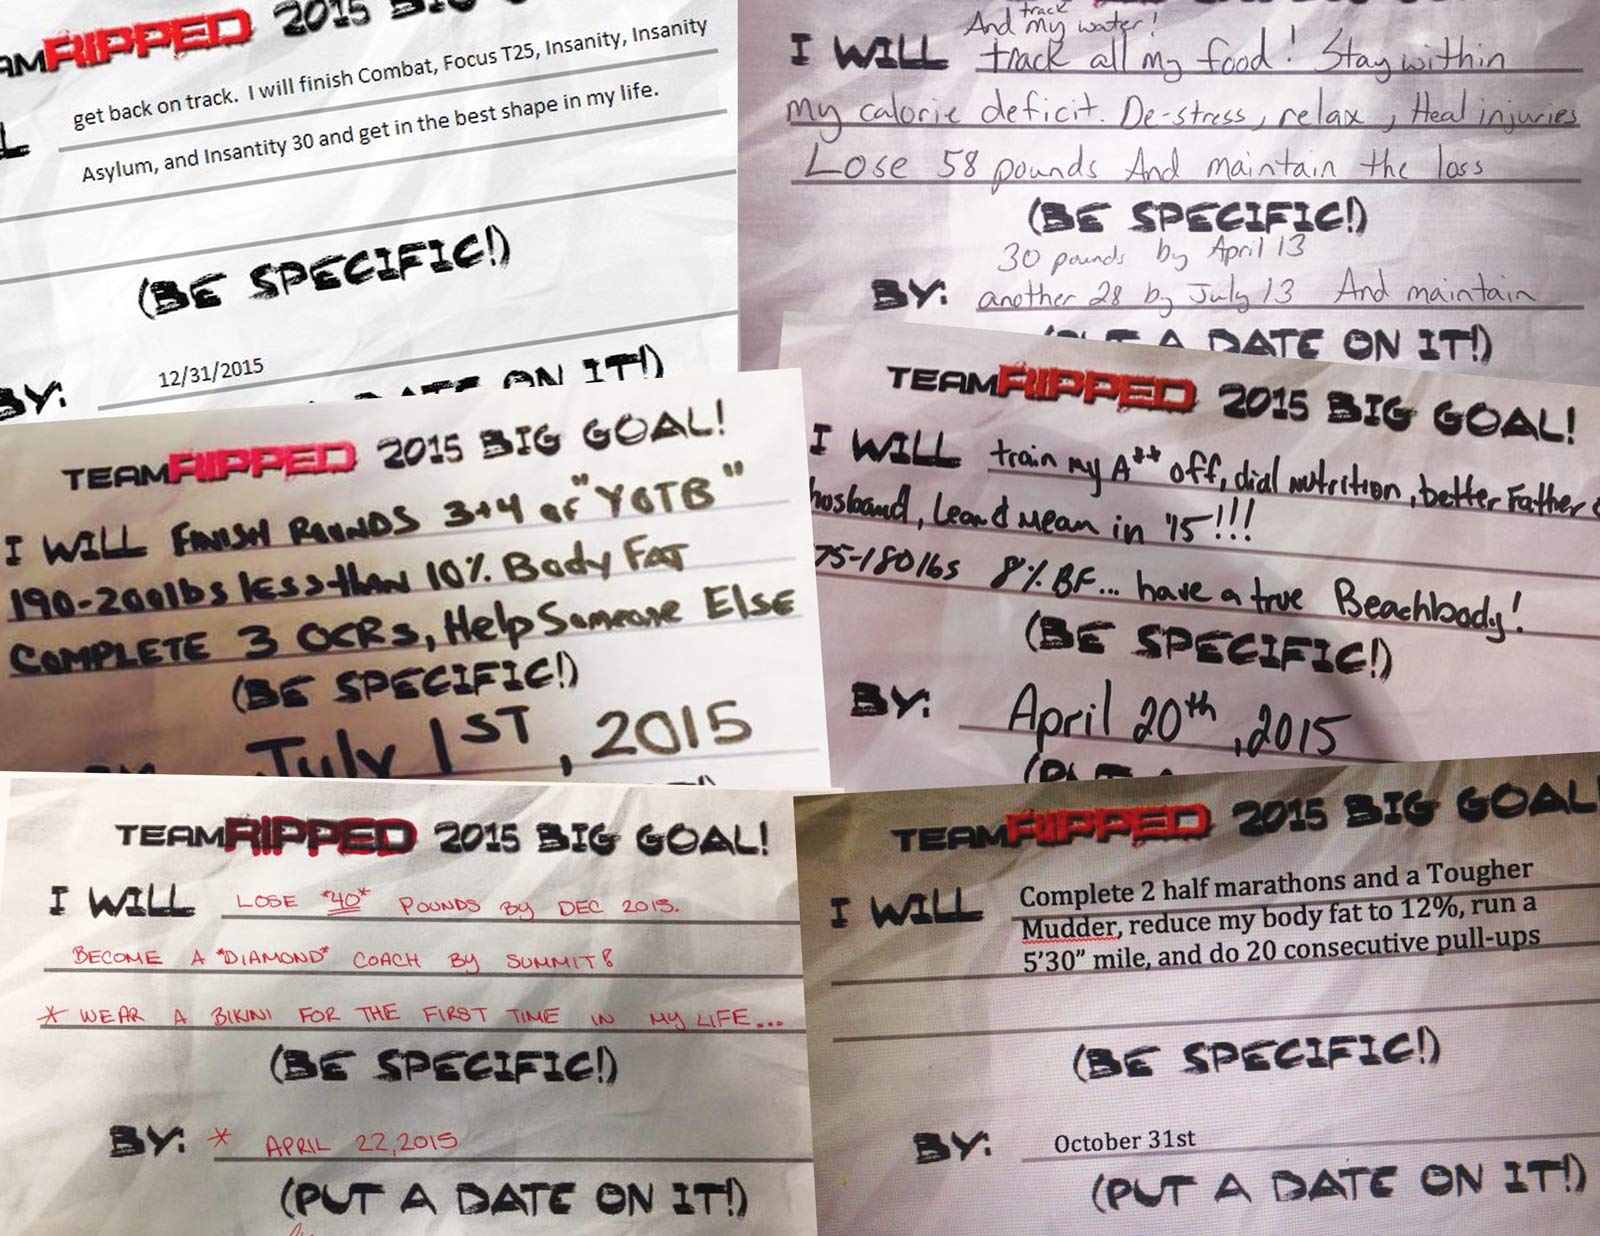 TEAMRIPPED 2015 BIG
get back on track. I will finish Combat, Focus T25, Insanity, Insanity
Asylum, and Insantity 30 and get in the best shape in my life.
(BE SPECIFIC!)
BY: 12/31/2015
DATE ON IT!)
track
And my water!
I WILL track all my food! Stay within
my calorie deficit. De-stress, relax, Heal injuries
Lose 58 pounds And maintain the loss
(BE SPECIFIC!)
30 pounds by April 13
BY: another 28 by July 13 And maintain
(PUT A DATE ON IT!)
TEAMRIPPED 2015 BIG GOAL!
I WILL FINISH ROUNDS 3+4 of "YOTB"
190-200lbs less than 10% Body FAT
COMPLETE 3 OCRs, Help Someone Else
(BE SPECIFIC!)
BY: July 1ST, 2015
TEAMRIPPED 2015 BIG GOAL!
I WILL train my A** off, dial nutrition, better Father &
husband, Lean & Mean in '15!!!
75-180lbs 8% BF... have a true Beachbody!
(BE SPECIFIC!)
BY: April 20th, 2015
(PUT A
TEAMRIPPED 2015 BIG GOAL!
I WILL LOSE *40* POUNDS BY DEC 2015.
BECOME A *DIAMOND* COACH BY SUMMIT!
* WEAR A BIKINI FOR THE FIRST TIME IN MY LIFE...
(BE SPECIFIC!)
BY: * APRIL 22, 2015
(PUT A DATE ON IT!)
TEAMRIPPED 2015 BIG GOAL!
I WILL Complete 2 half marathons and a Tougher
Mudder, reduce my body fat to 12%, run a
5'30" mile, and do 20 consecutive pull-ups
(BE SPECIFIC!)
BY: October 31st
(PUT A DATE ON IT!)